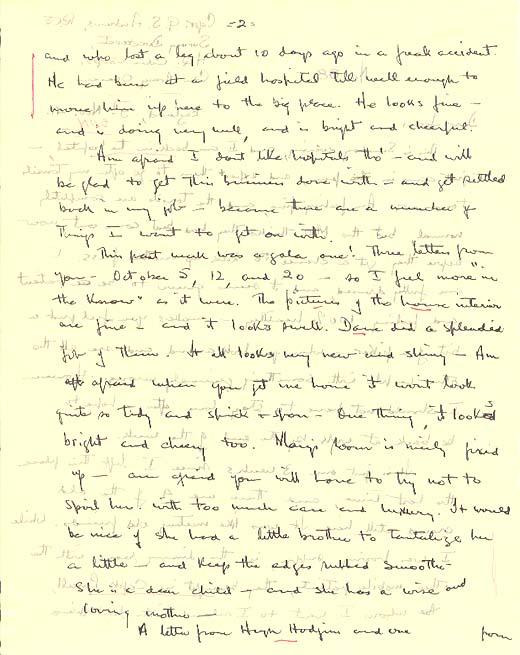 -2-
and who lost a leg about 10 days ago in a freak accident.
He had been at a field hospital till well enough to
move him up here to the big place. He looks fine -
and is doing very well, and is bright and cheerful.
Am afraid I dont like hospitals tho' - and will
be glad to get this business done with - and get settled
back in my job - because there are a number of
things I want to get on with.
This past week was a gala one! Three letters from
you - October 5, 12, and 20 - so I feel more "in
the know" as it were. The pictures of the house interior
are fine - and it looks swell. Dave did a splendid
job of them. It all looks very new and shiny - Am
afraid when you get me home it wont look
quite so tidy and spick & span - One thing, it looks
bright and cheery too. Margs room is nicely fixed
up - am afraid you will have to try not to
spoil her with too much care and luxury. It would
be nice if she had a little brother to tantalize her
a little - and keep the edges rubbed smooth -
She is a dear child - and she has a wise and
loving mother -
A letter from Hugh Hodgins and one from